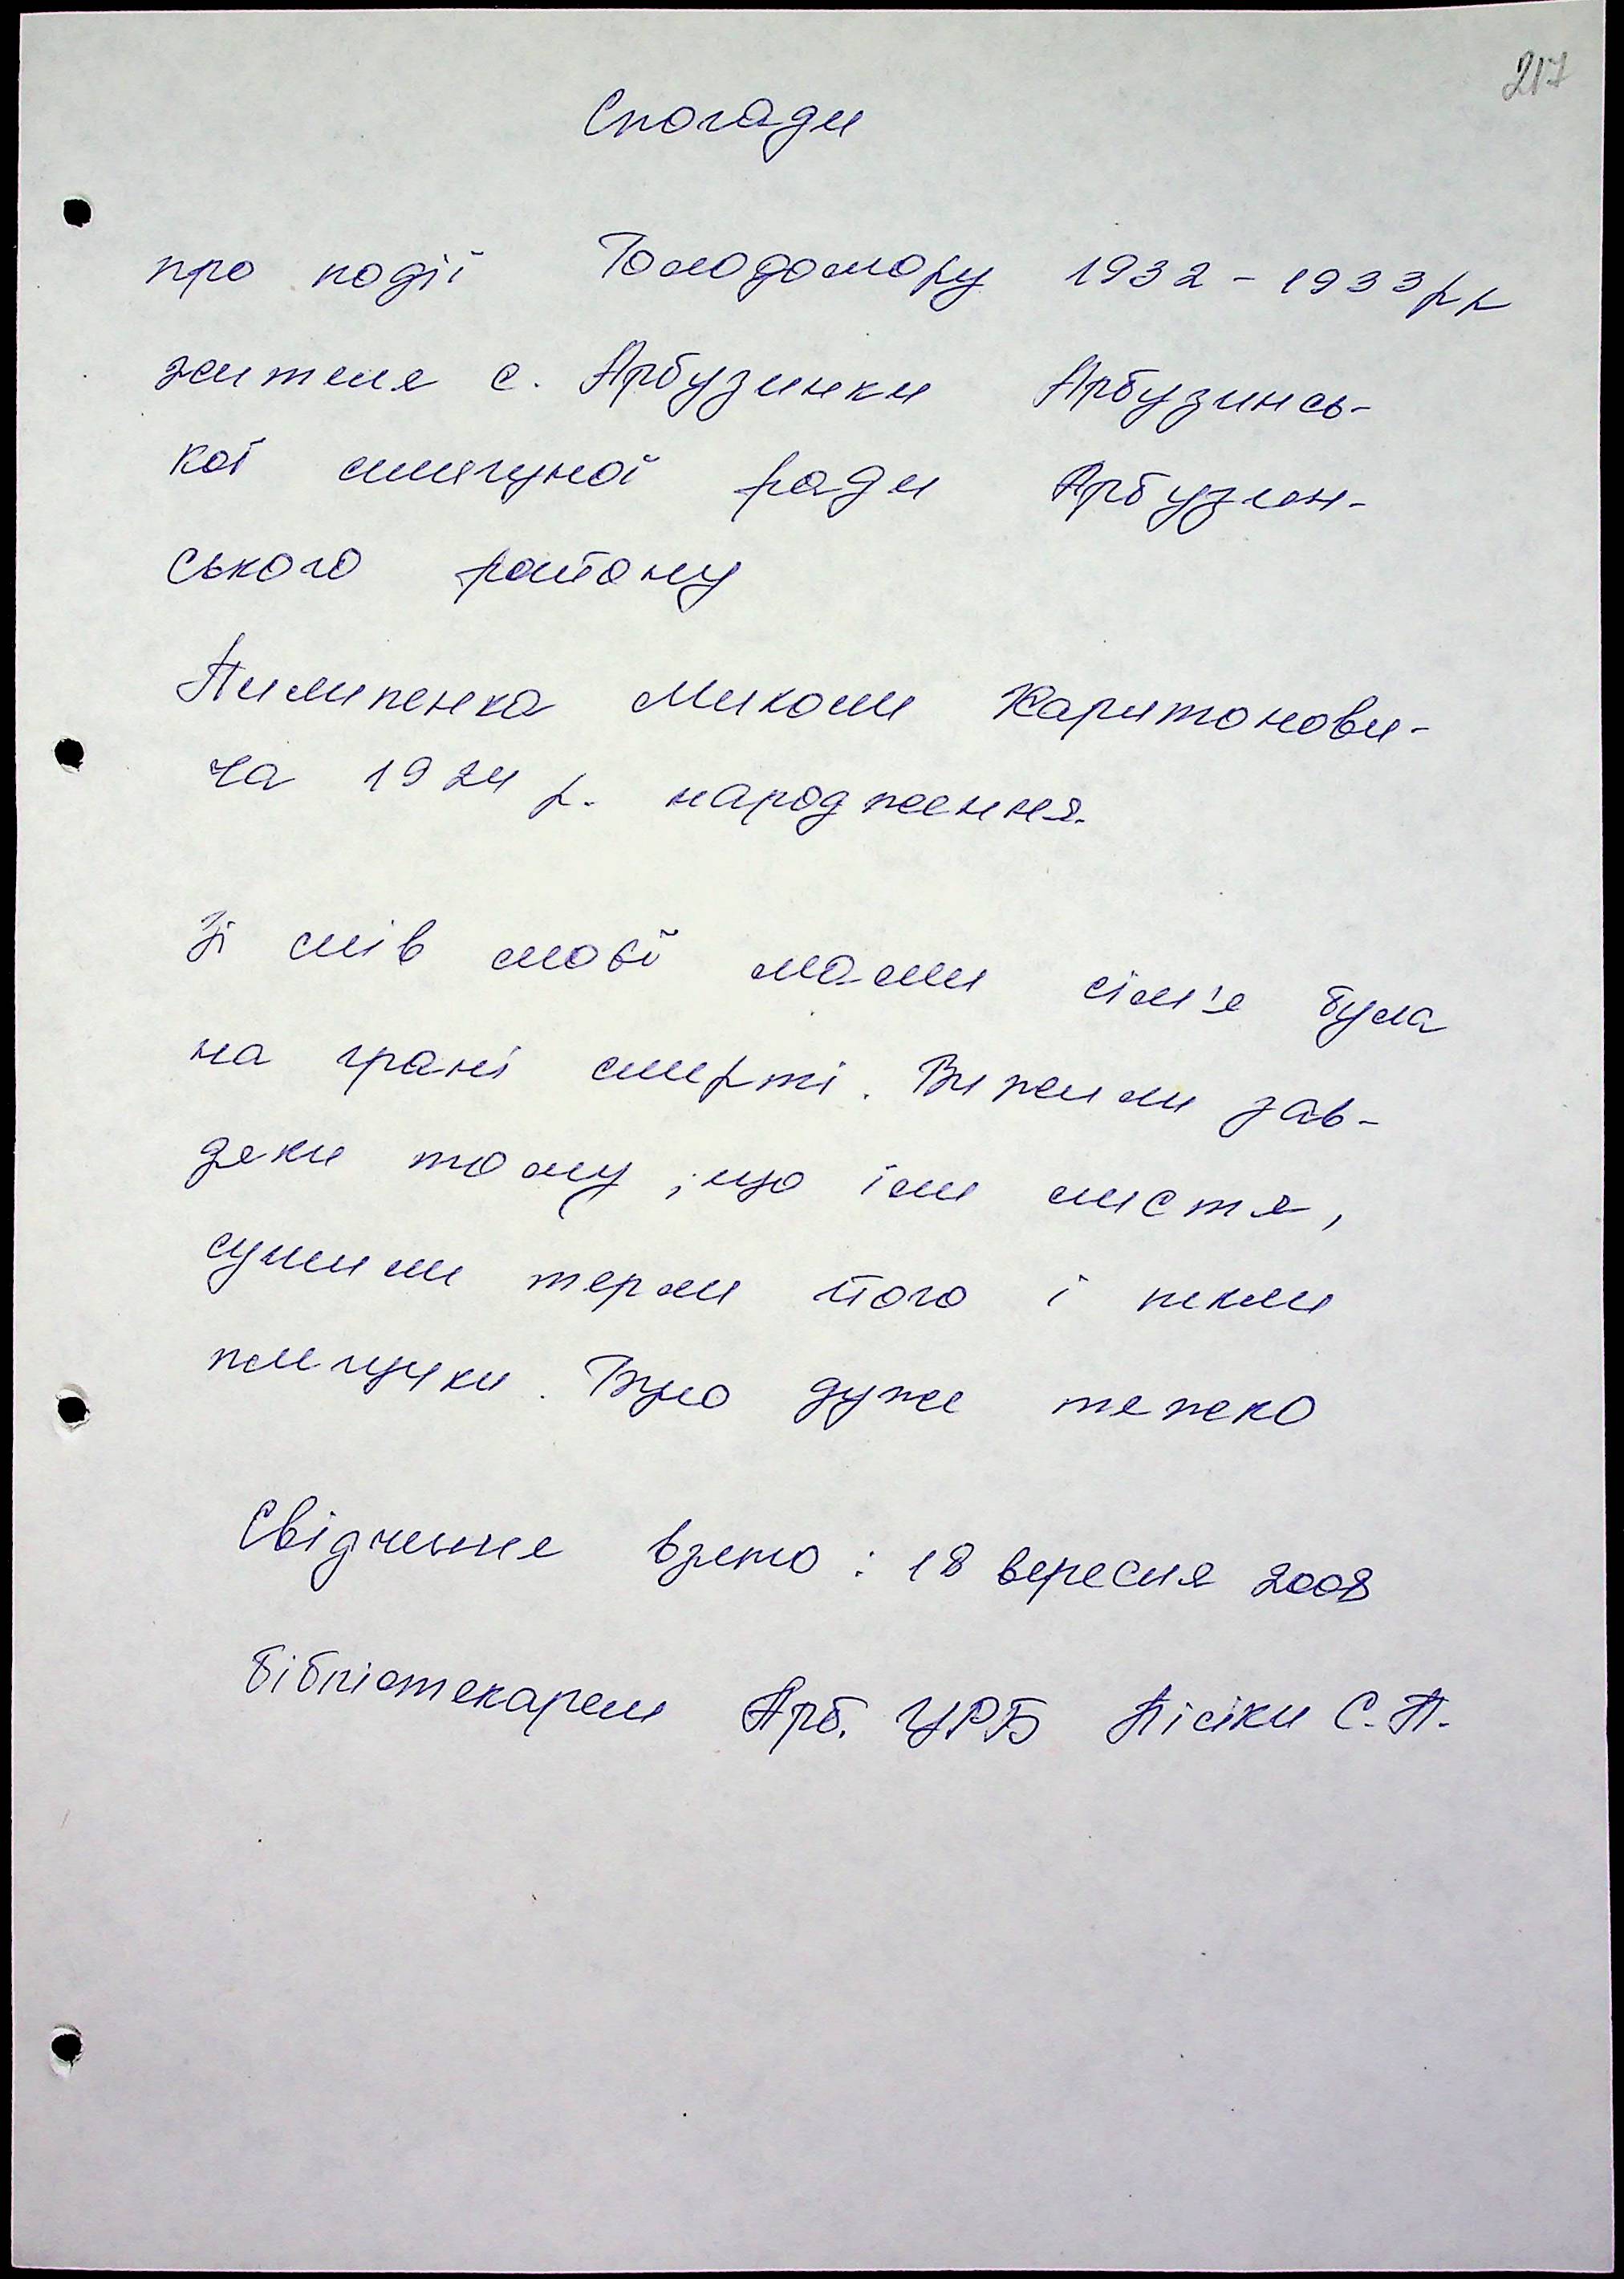 217
Спогади
про події Голодомору 1932 - 1933 рр
жителя с. Арбузинки Арбузинсь-
кої селищної ради Арбузин-
ського району
Пилипенка Миколи Харитонови-
ча 1924 р. народження.
Зі слів моєї мами сім'я була
на грані смерті. Вижили зав-
дяки тому, що їли листя,
сушили терли його і пекли
Було дуже тяжко
Свідчення взято: 18 вересня 2008
бібліотекарем Арб. ЦРБ С.П.